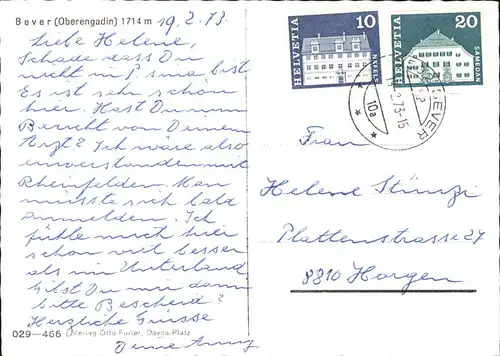 Bever (Oberengadin) 1714 m
19.2.73.
Liebe Helene,
Schade dass Du
nicht in bist
Es ist sehr schön
hier. Hast Du nun
Bericht von Deinem
Arzt? Ich wäre also
einverstanden mit
Rheinfelden. Man
müsste sich bald
anmelden. Ich
fühle mich hier
schon viel besser
als im Unterland
Gibst Du mir dann
bitte Bescheid?
Herzliche Grüsse
Deine
029—466 Verlag Otto Furter, Davos-Platz
HELVETIA 10
HELVETIA 20
SAMEDAN
BEVER
10a
2.73-15
Frau
Helene Stünzi
Plattenstrasse 27
8810 Horgen